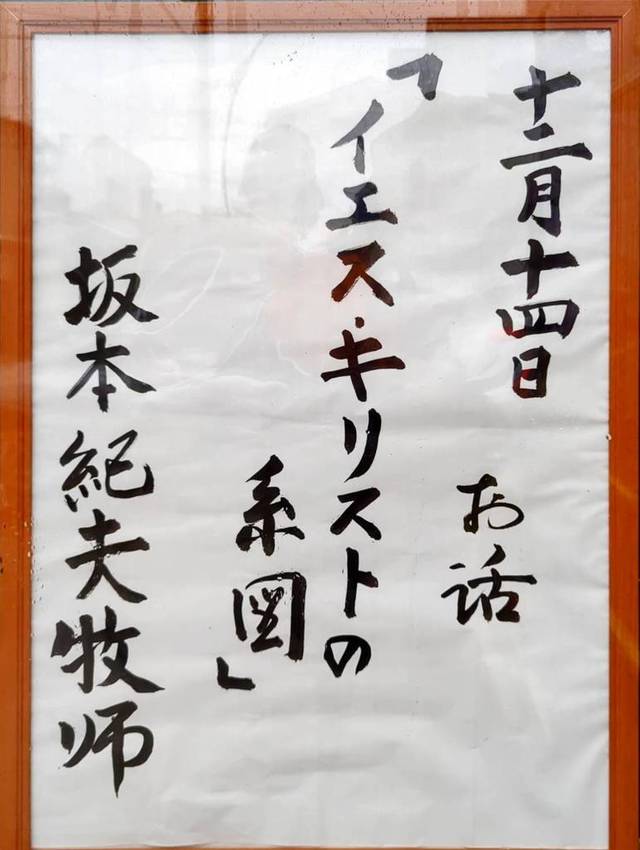 十二月十四日
お話
「イエス・キリストの
系図」
坂本紀夫牧师